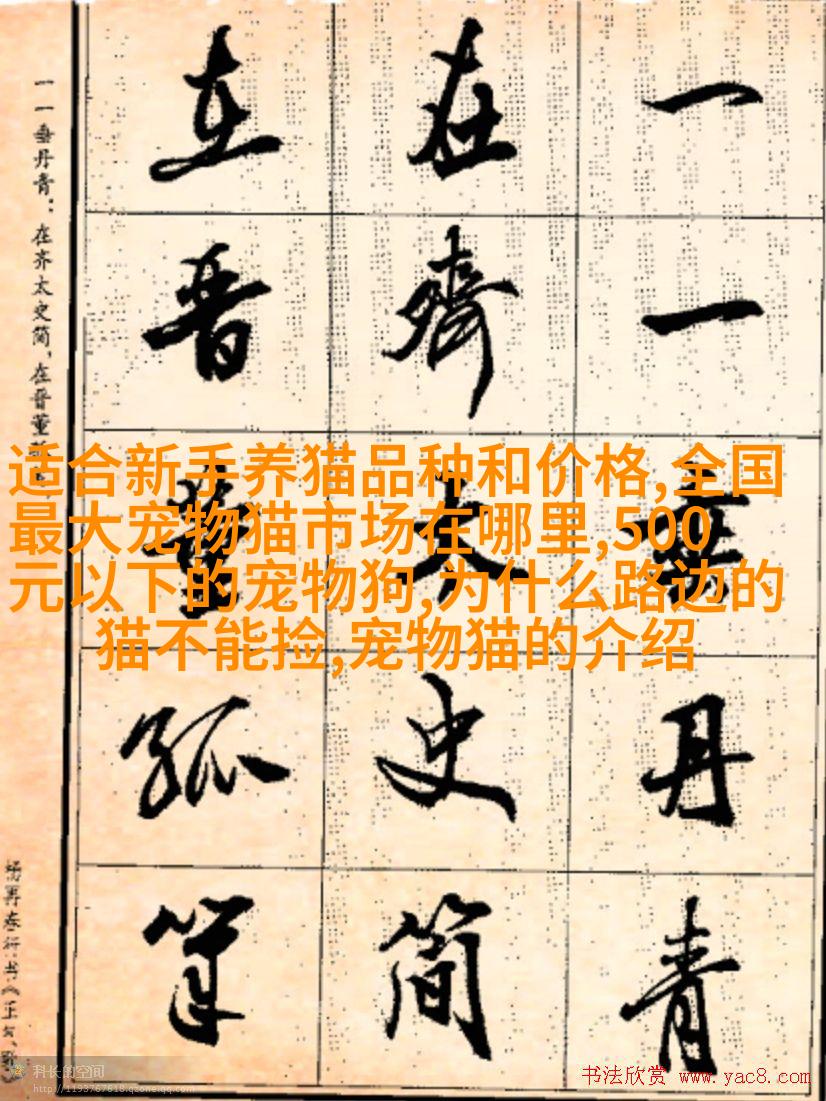 一一垂丹青
在齊太史简
在晋董狐筆
一一垂丹青：在齐太史简，在晋董
杨再春行书《正气歌》
适合新手养猫品种和价格,全国
最大宠物猫市场在哪里,500
元以下的宠物狗,为什么路边的
猫不能捡,宠物猫的介绍
科长的空间
http://1193767618.qzone.qq.com
书法欣赏 www.yac8.com